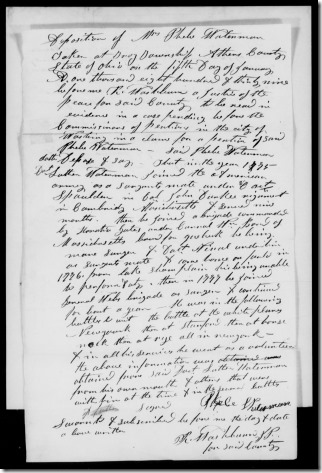 Deposition of Mrs Phebe Waterman
Taken at Troy Township Athens County
State of Ohio on the fifth Day of January
One thousand eight hundred & thirty nine
before me R. Washburn a Justice of the
peace for said County to be used in
evidence in a case pending before the
Commissions of Pentions in the city of
Washing in a claim for a Pention of said
Phebe Waterman — said Phebe Waterman
doth Depose & say, — That in the year 1775
Luther Waterman joined the American
army as a surgants mate under Capt
Spaulden in Col John regiment
in Cambridg Massachusetts & served nine
months then he joined a brigade commanded
by Horatio Gates under Carnal
Massachusetts bound for qubeck he being
mate surgen & Capt under him
as surgants mate & came home on furlo in
1776 from lake Champlain his being unable
to perform duty, then in 1777 he joined
General Webs brigade as surgen & continued
for bout a year He was in the following
battles to wit the battle at the white plains
Newyork then at then at horse
neck then at rye all in newyork
& in all his services he went as a volunteer
the above information was
obtained from said Luther Waterman
from his own mouth & others that were
with him at the time & in the battles
Signed
Phebe Waterman
Sworn to & subscribed before me the day & date
above written
R. Washburn J.P.
for said County